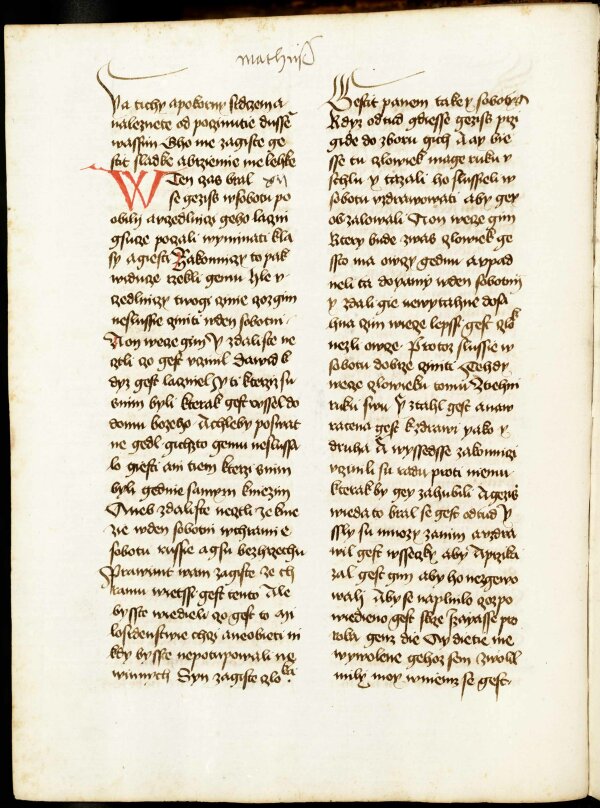 mathus
ya tichy a pokorny srdczem a
naleznete od poczinutie dusse
wassim Gho me zagiste ge
stit sladke a brziemie me lehke
WTen czas bral xii
se gezis w sobotu po
obilij a uczedlnici geho lacni
gsucze poczali wyminati kla
sy a giesti Zakonniczy to pak
widucze rzekli gemu hle v
czedlniczy twogi czinie gozgim
neslussie cziniti w den sobotni
A on wecze gim y zdaliste ne
cztli czo gest vczinil Dawid k
dyz gest laczniel y ti kterzij su
s nim byli kterak gest wssel do
domu bozeho A chleby poswat
ne gedl gichzto gemu neslussa
lo giesti ani tiem kterzi s nim
byli gedine samym kniezim
Aneb zdaliste necztli ze kne
zie w den sobotni w chrami e
sobotu russie a gsu bez hrzechu
Prawimt wam zagiste ze ch
ramu wietssi gest tento Ale
bysste wiedieli czo gest to mi
losrdenstwie chczy a neobieti ni
kdy bysste nepotupowali ne
winnych Syn zagiste czlo ka
Gestit panem take y soboty
Kdyz od tud gdiesse gezis przi
gide do zboru gich A ay bie
sse tu czlowiek mage ruku v
schlu y tazali ho slussieli w
sobotu vzdrawowati aby gey
obzalowali A on wecze gim
Ktery bude z was czlowiek ge
ssto ma owczy gednu a vpad
neli ta do yamy w den sobotnij
y zdali gie newytahne Dosti
hna czim wiecze lepssi gest czlo k
nezli owcze Protoz slussie w
sobotu dobrze cziniti Tehdy
wecze czlowieku tomu Ztiehni
ruku swu y ztahl gest a naw
racena gest k zdrawi yako y
druha A wyssedsse zakonniczi
vczinili su radu proti niemu
kterak by gey zahubili A gezis
wieda to bral se gest od tud y
ssly su mnozy za nim a vzdra
wil gest wsseczky aby A przika
zal gest gim aby ho nezgewo
wali Aby se naplnilo czo zpo
wiedieno gest skrze Izayasse pro
roka genz die Ay dietie me
wywolene gehoz sem zwolil
milij moy w niemz se gest